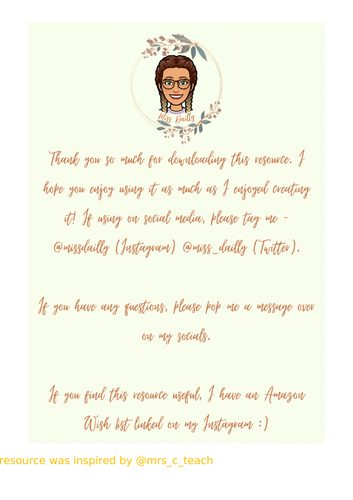 Miss Dailly
Thank you so much for downloading this resource. I
hope you enjoy using it as much as I enjoyed creating
it! If using on social media, please tag me -
@missdailly (Instagram) @miss_dailly (Twitter).
If you have any questions, please pop me a message over
on my socials.
If you find this resource useful, I have an Amazon
Wish list linked on my Instagram :)
resource was inspired by @mrs_c_teach